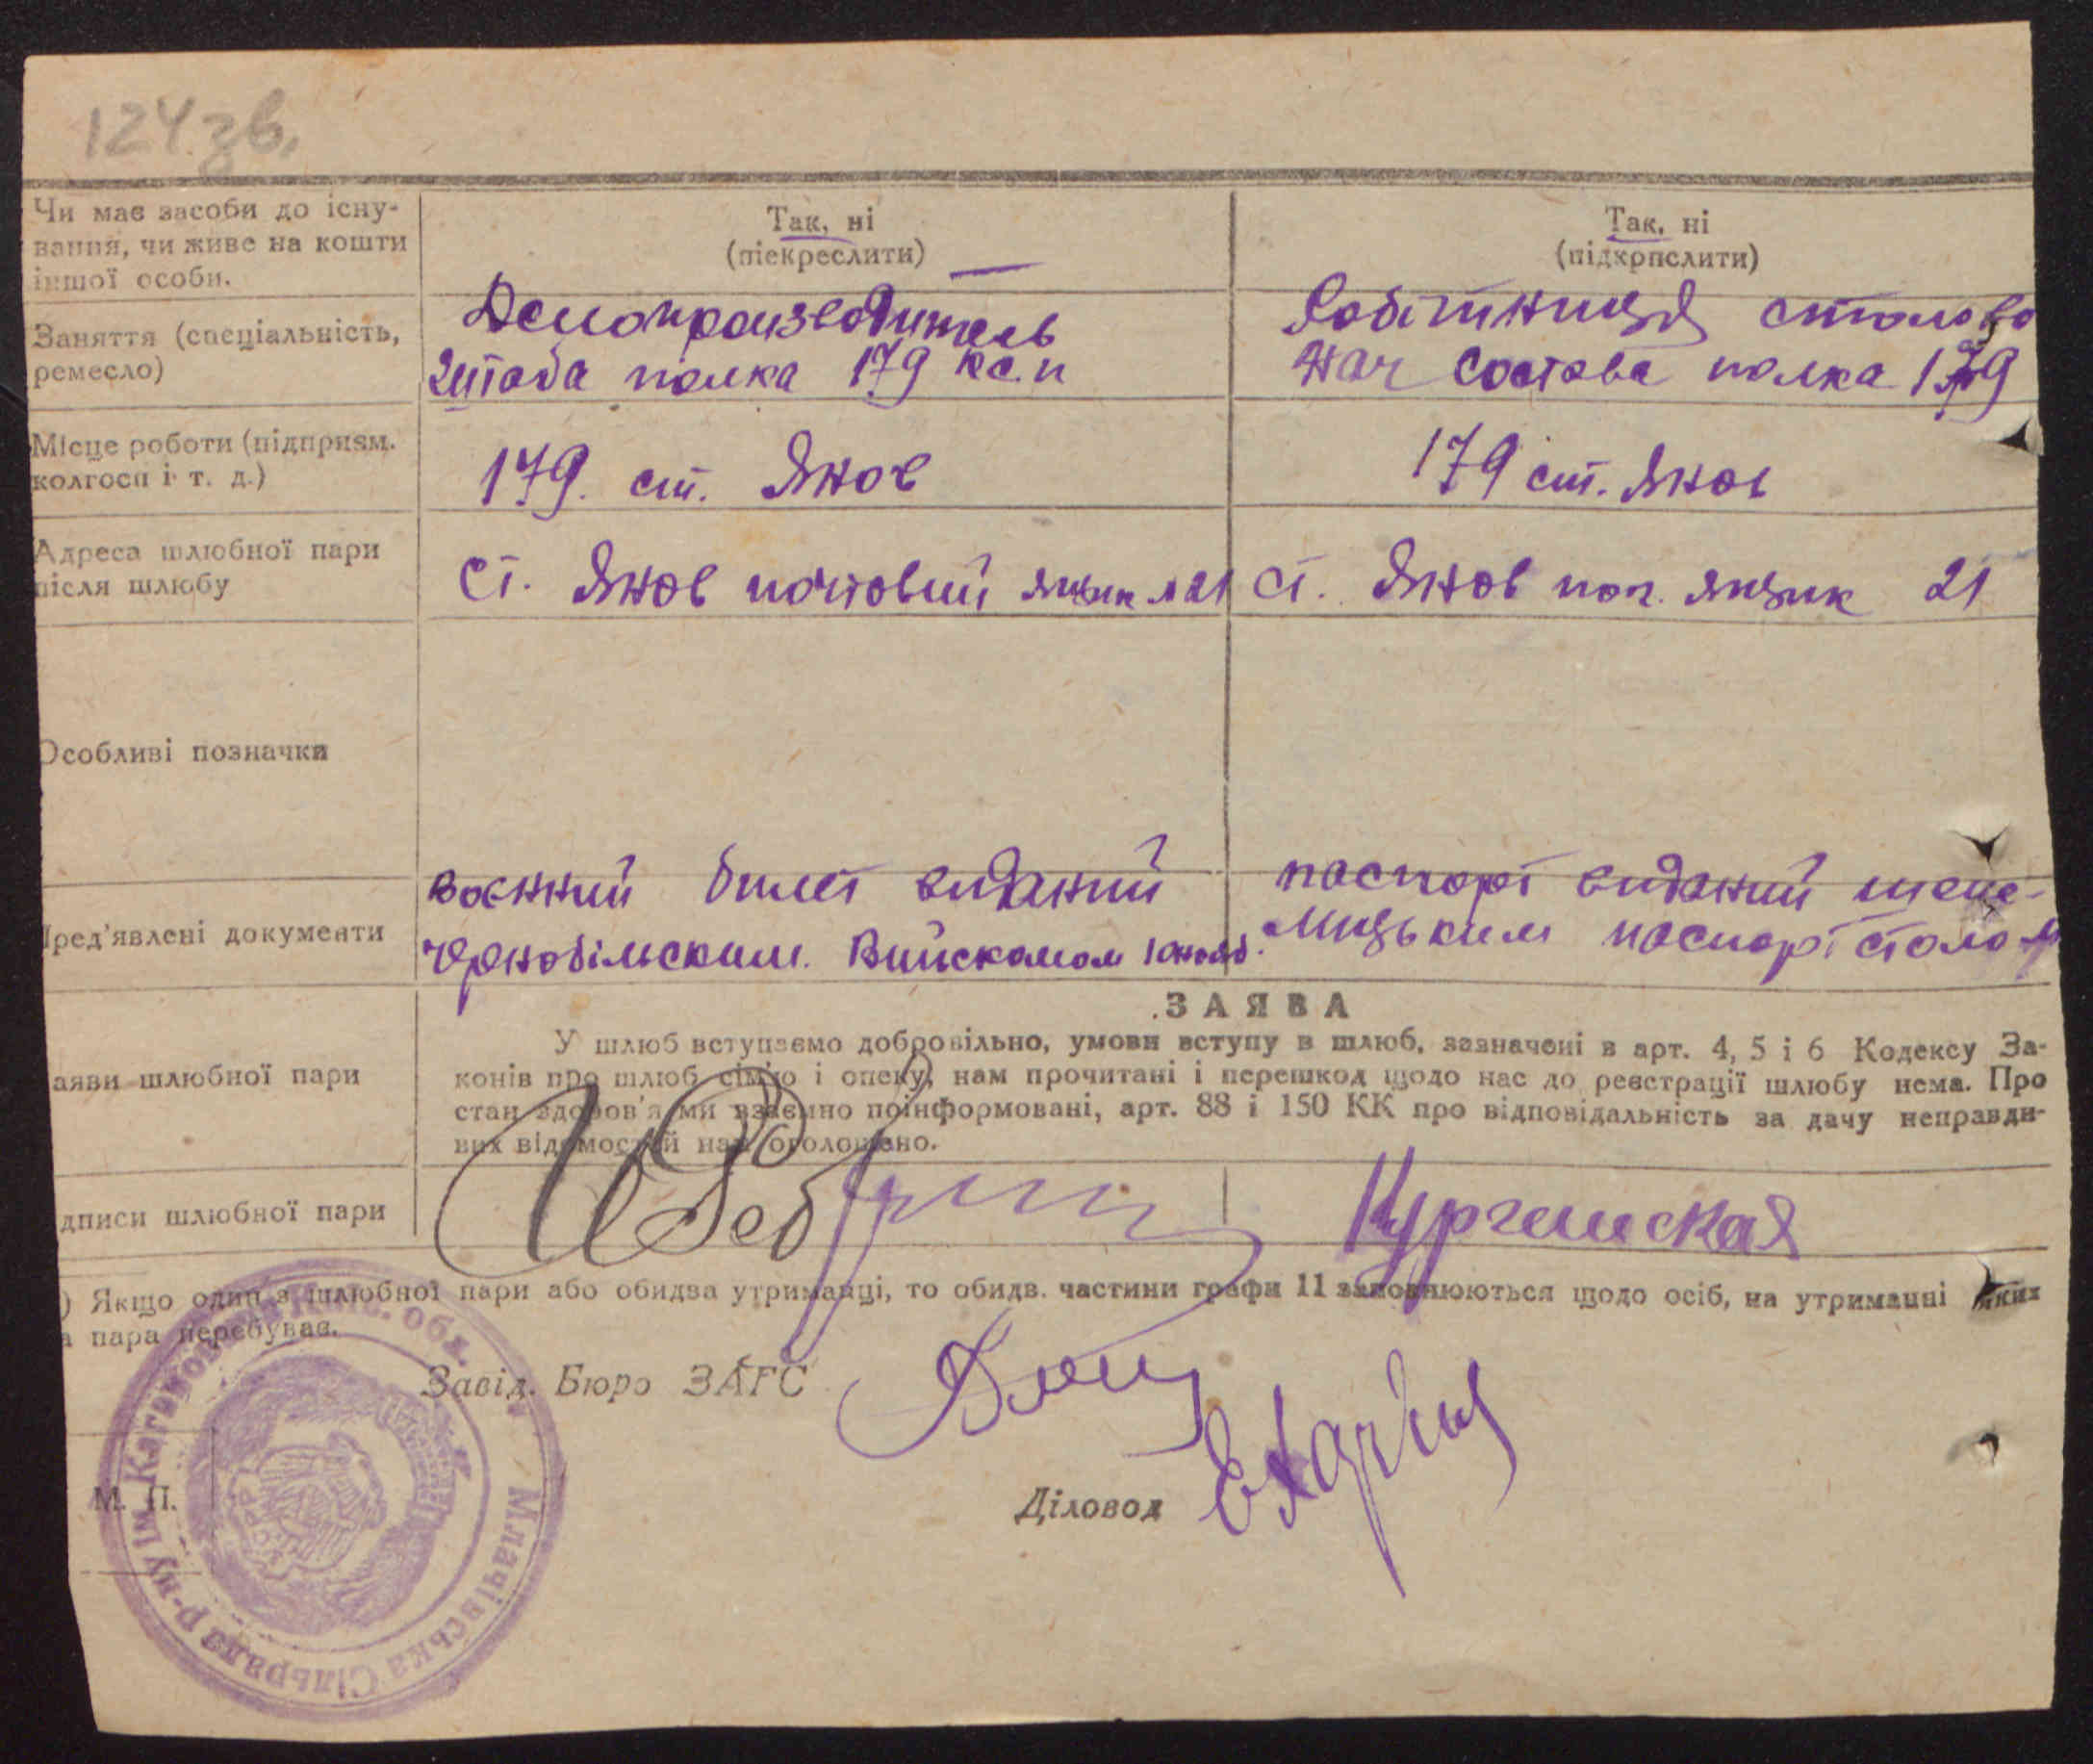 124 зв.
Чи має засоби до існу-
вання, чи живе на кошти
іншої особи.
Так, ні
(піекреслити)
Так, ні
(підкрпслити)
Заняття (спеціальність,
ремесло)
Делопроизводитель
Штаба полка 179 кс.п
Робітниця столово
Нач состава полка 179
Місце роботи (підприям.
колгосп і т. д.)
179. ст. Янов
179 ст. Янов
Адреса шлюбної пари
після шлюбу
Ст. Янов почтовий ящик №21
Ст. Янов поч. ящик 21
Особливі позначки
Пред'явлені документи
военний билет виданий
Чорнобільским. Вийскомом
паспорт виданий шепе-
тицьким паспортстолом
ЗАЯВА
аяви шлюбної пари
У шлюб вступаємо добровільно, умови вступу в шлюб, зазначені в арт. 4, 5 і 6 Кодексу За-
конів про шлюб сім'ю і опеку, нам прочитані і перешкод щодо нас до реєстрації шлюбу нема. Про
стан здоров'я ми взаємно поінформовані, арт. 88 і 150 КК про відповідальність за дачу неправди-
вих відомостей нам оголошено.
дписи шлюбної пари
) Якщо один з шлюбної пари або обидва утриманці, то обидв. частини графи 11 заповнюються щодо осіб, на утриманні яких
а пара перебуває.
Завід. Бюро ЗАГС
М. П.
Діловод
Млачівська Сільрада р-ну Ім. Кагановича обл.